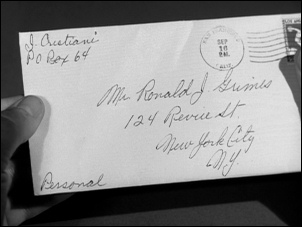 J. Crestiani
PO Box 64
SEP
16
Mr. Ronald J Grimes
124 Revere St
New York City
N.Y.
Personal